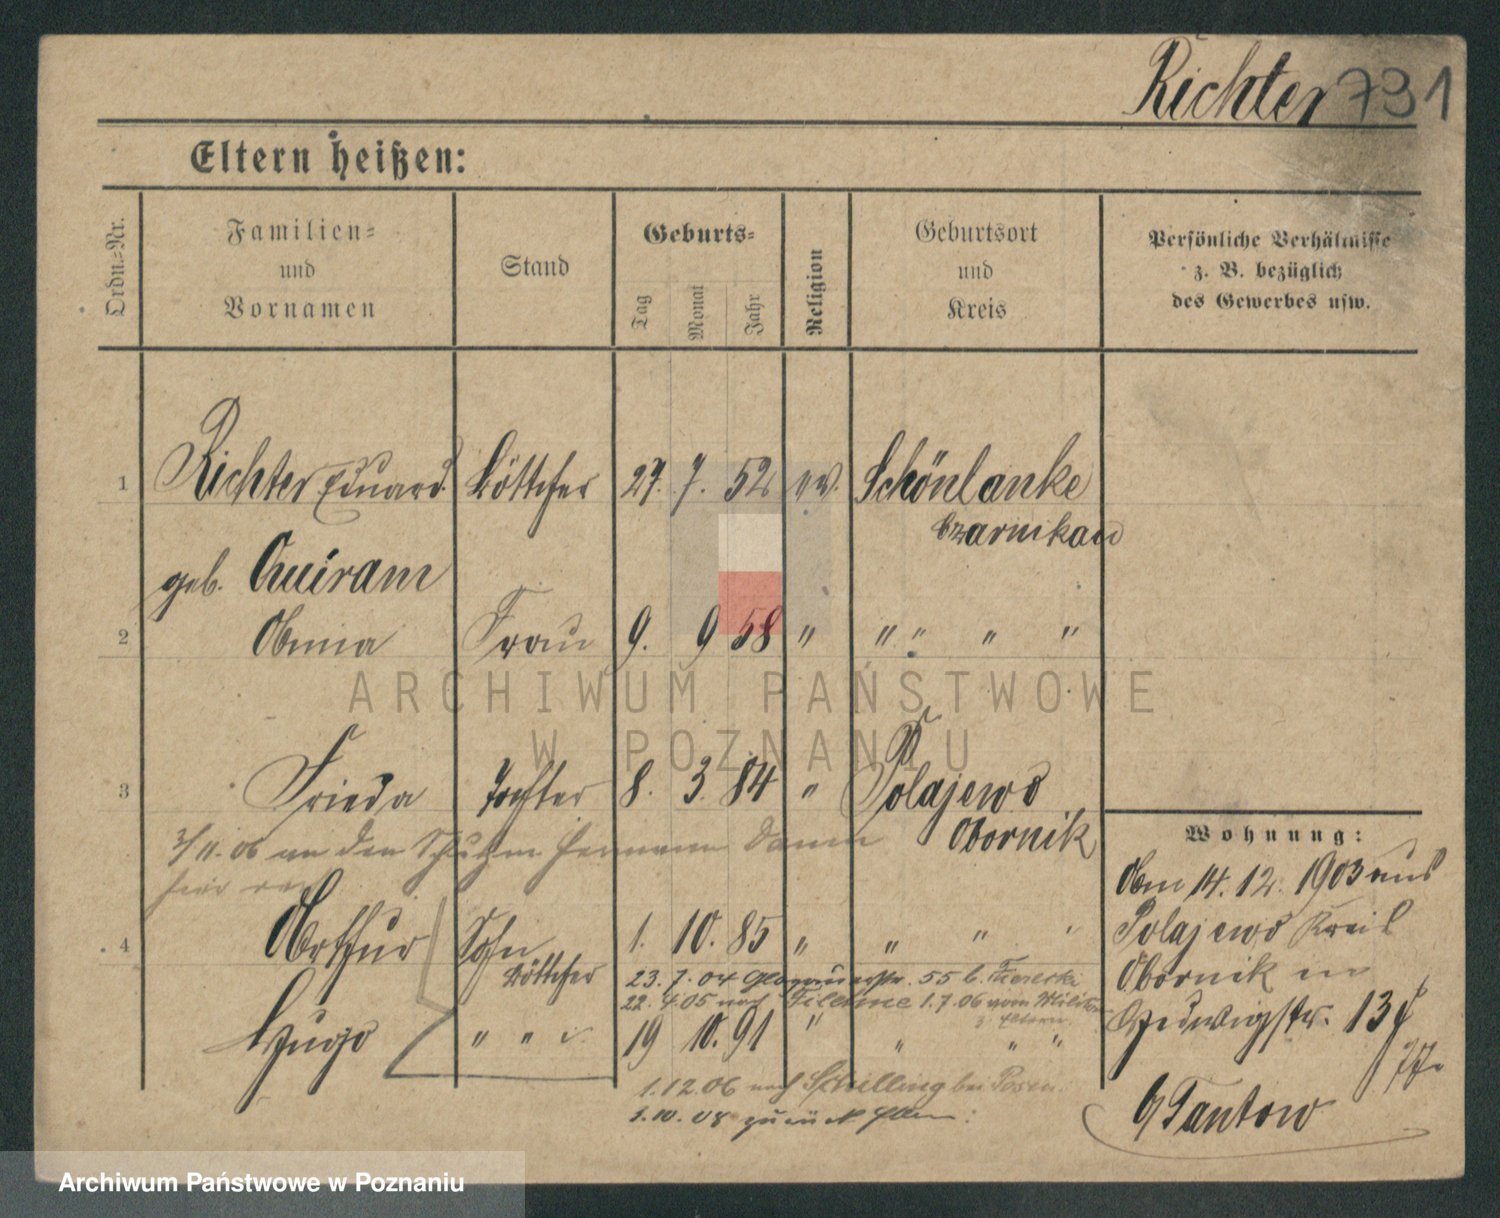 Richter 731
Eltern heißen:
Ordn.-Nr.
Familien-
und
Vornamen
Stand
Geburts-
Tag
Monat
Jahr
Religion
Geburtsort
und
Kreis
Persönliche Verhältnisse
z. B. bezüglich
des Gewerbes usw.
1 Richter Eduard Böttcher 27. 7. 52 ev. Schönlanke
Czarnikau
geb. Quiram
2 Frau 9. 9 58 " " " " "
3 Frieda Tochter 8. 3. 84 " Polajewo
Obornik
3/11.06 an den Schutzm. Hermann
4 Arthur Sohn 1. 10. 85 " " " "
Böttcher 23. 7. 04 Glogauerstr. 55 b.
22. 4 05 nach Filehne 1.7.06 vom Militär
z. Eltern
Hugo " " 19 10. 91 " " " "
1.12.06 nach Schilling bei Posen
1.10.08 zurück Eltern
Wohnung:
Am 14.12.1903 aus
Polajewo Kreis
Obornik in
Hedwigstr. 13
b/Tantow
ARCHIWUM PAŃSTWOWE
W POZNANIU
Archiwum Państwowe w Poznaniu